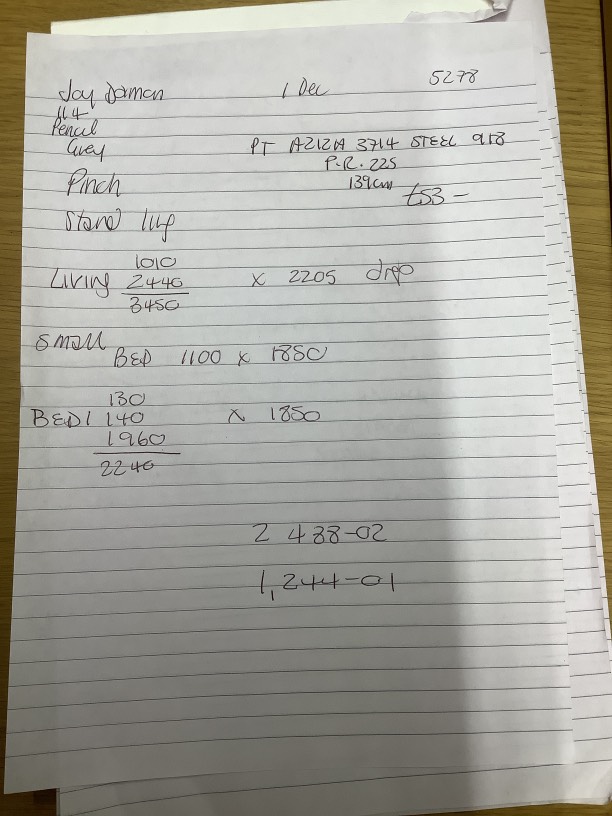 Jay Dorman 1 Dec 5278
114
Pencil
Grey PT AZIZA 3714 STEEL 918
P.R. 225
139cm
Pinch £53-
Stand
1010
Living 2440 x 2205 drop
3450
Small
BED 1100 x 1850
130
BED1 140 x 1850
1960
2240
2 488-02
1,244-01